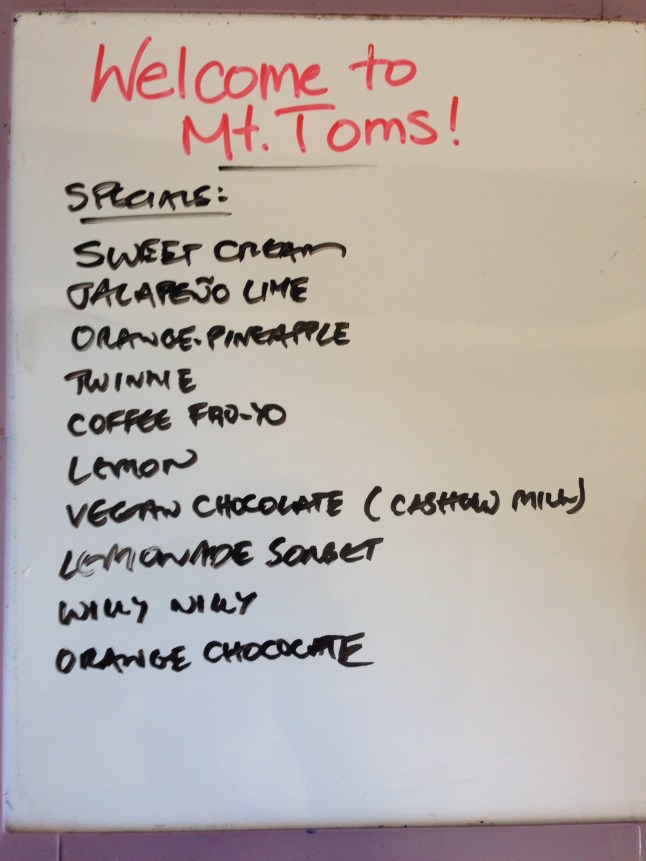 Welcome to
Mt. Toms!
SPECIALS:
SWEET CREAM
JALAPEÑO LIME
ORANGE-PINEAPPLE
TWINKIE
COFFEE FRO-YO
LEMON
VEGAN CHOCOLATE (CASHEW MILK)
LEMONADE SORBET
WILLY NILLY
ORANGE CHOCOLATE